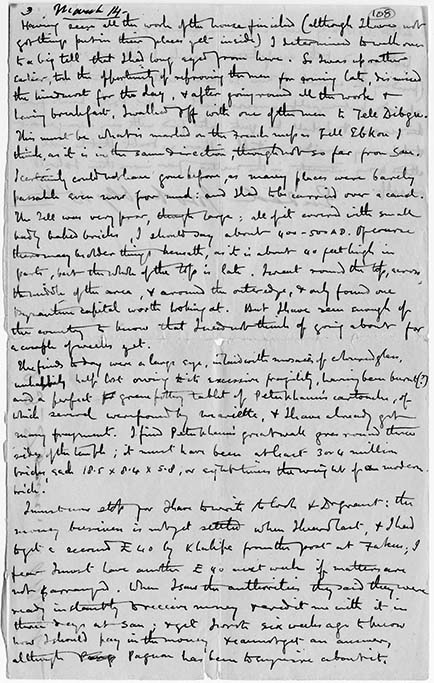 3 March 14. (108)
Having seen all the work of the house finished (although I have not
got things put in their places yet inside) I determined to walk over
to a big tell that I had long eyed from here. So I was up rather
earlier, took the opportunity of reproving them for coming late, dismissed
the hindmost for the day, & after going round all the work &
having breakfast, I walked off with one of the men to Tell Dibgu.
This must be what is marked on the French map as Tell Ebkou I
think, as it is in the same direction, though not so far from San.
I certainly could not have gone before, as many places were barely
passable even now for mud: and I had to be carried over a canal.
The Tell was very poor, though large; all of it covered with small
badly baked bricks, I should say about 400-500 A.D. Of course
there may be older things beneath, as it is about 40 feet high in
parts, but the whole of the top is late. I went round the top, across
the middle of the area, & around the outer edge, & only found one
Byzantine capital worth looking at. But I have seen enough of
the country to know that I need not think of going about for
a couple of weeks yet.
The finds today were a large eye, inlaid with mosaic of glass,
half lost owing to its excessive fragility, having been burnt(?)
and a perfect green pottery tablet of Petukhanu's cartouche, of
which several were found by Mariette, & I have already got
many fragments. I find Petukhanu's great wall goes round three
sides of the temple; it must have been at least 3 or 4 million
bricks, each 18.5 x 8.4 x 5.8, or eight times the weight of a modern
brick.
I must now stop for I have to write to Cook & Degrant: the
money business is not yet settled when I heard last, & I had
to get a second £40 by Khalifa from the post at Fakus, I
fear I must have another £40 next week if matters are
not arranged. When I saw the authorities they said they were
ready instantly to receive money & credit me with it in
three days at San; & yet I wrote six weeks ago to know
how I should pay in the money & cannot get an answer,
although Paguan has been to enquire about it.